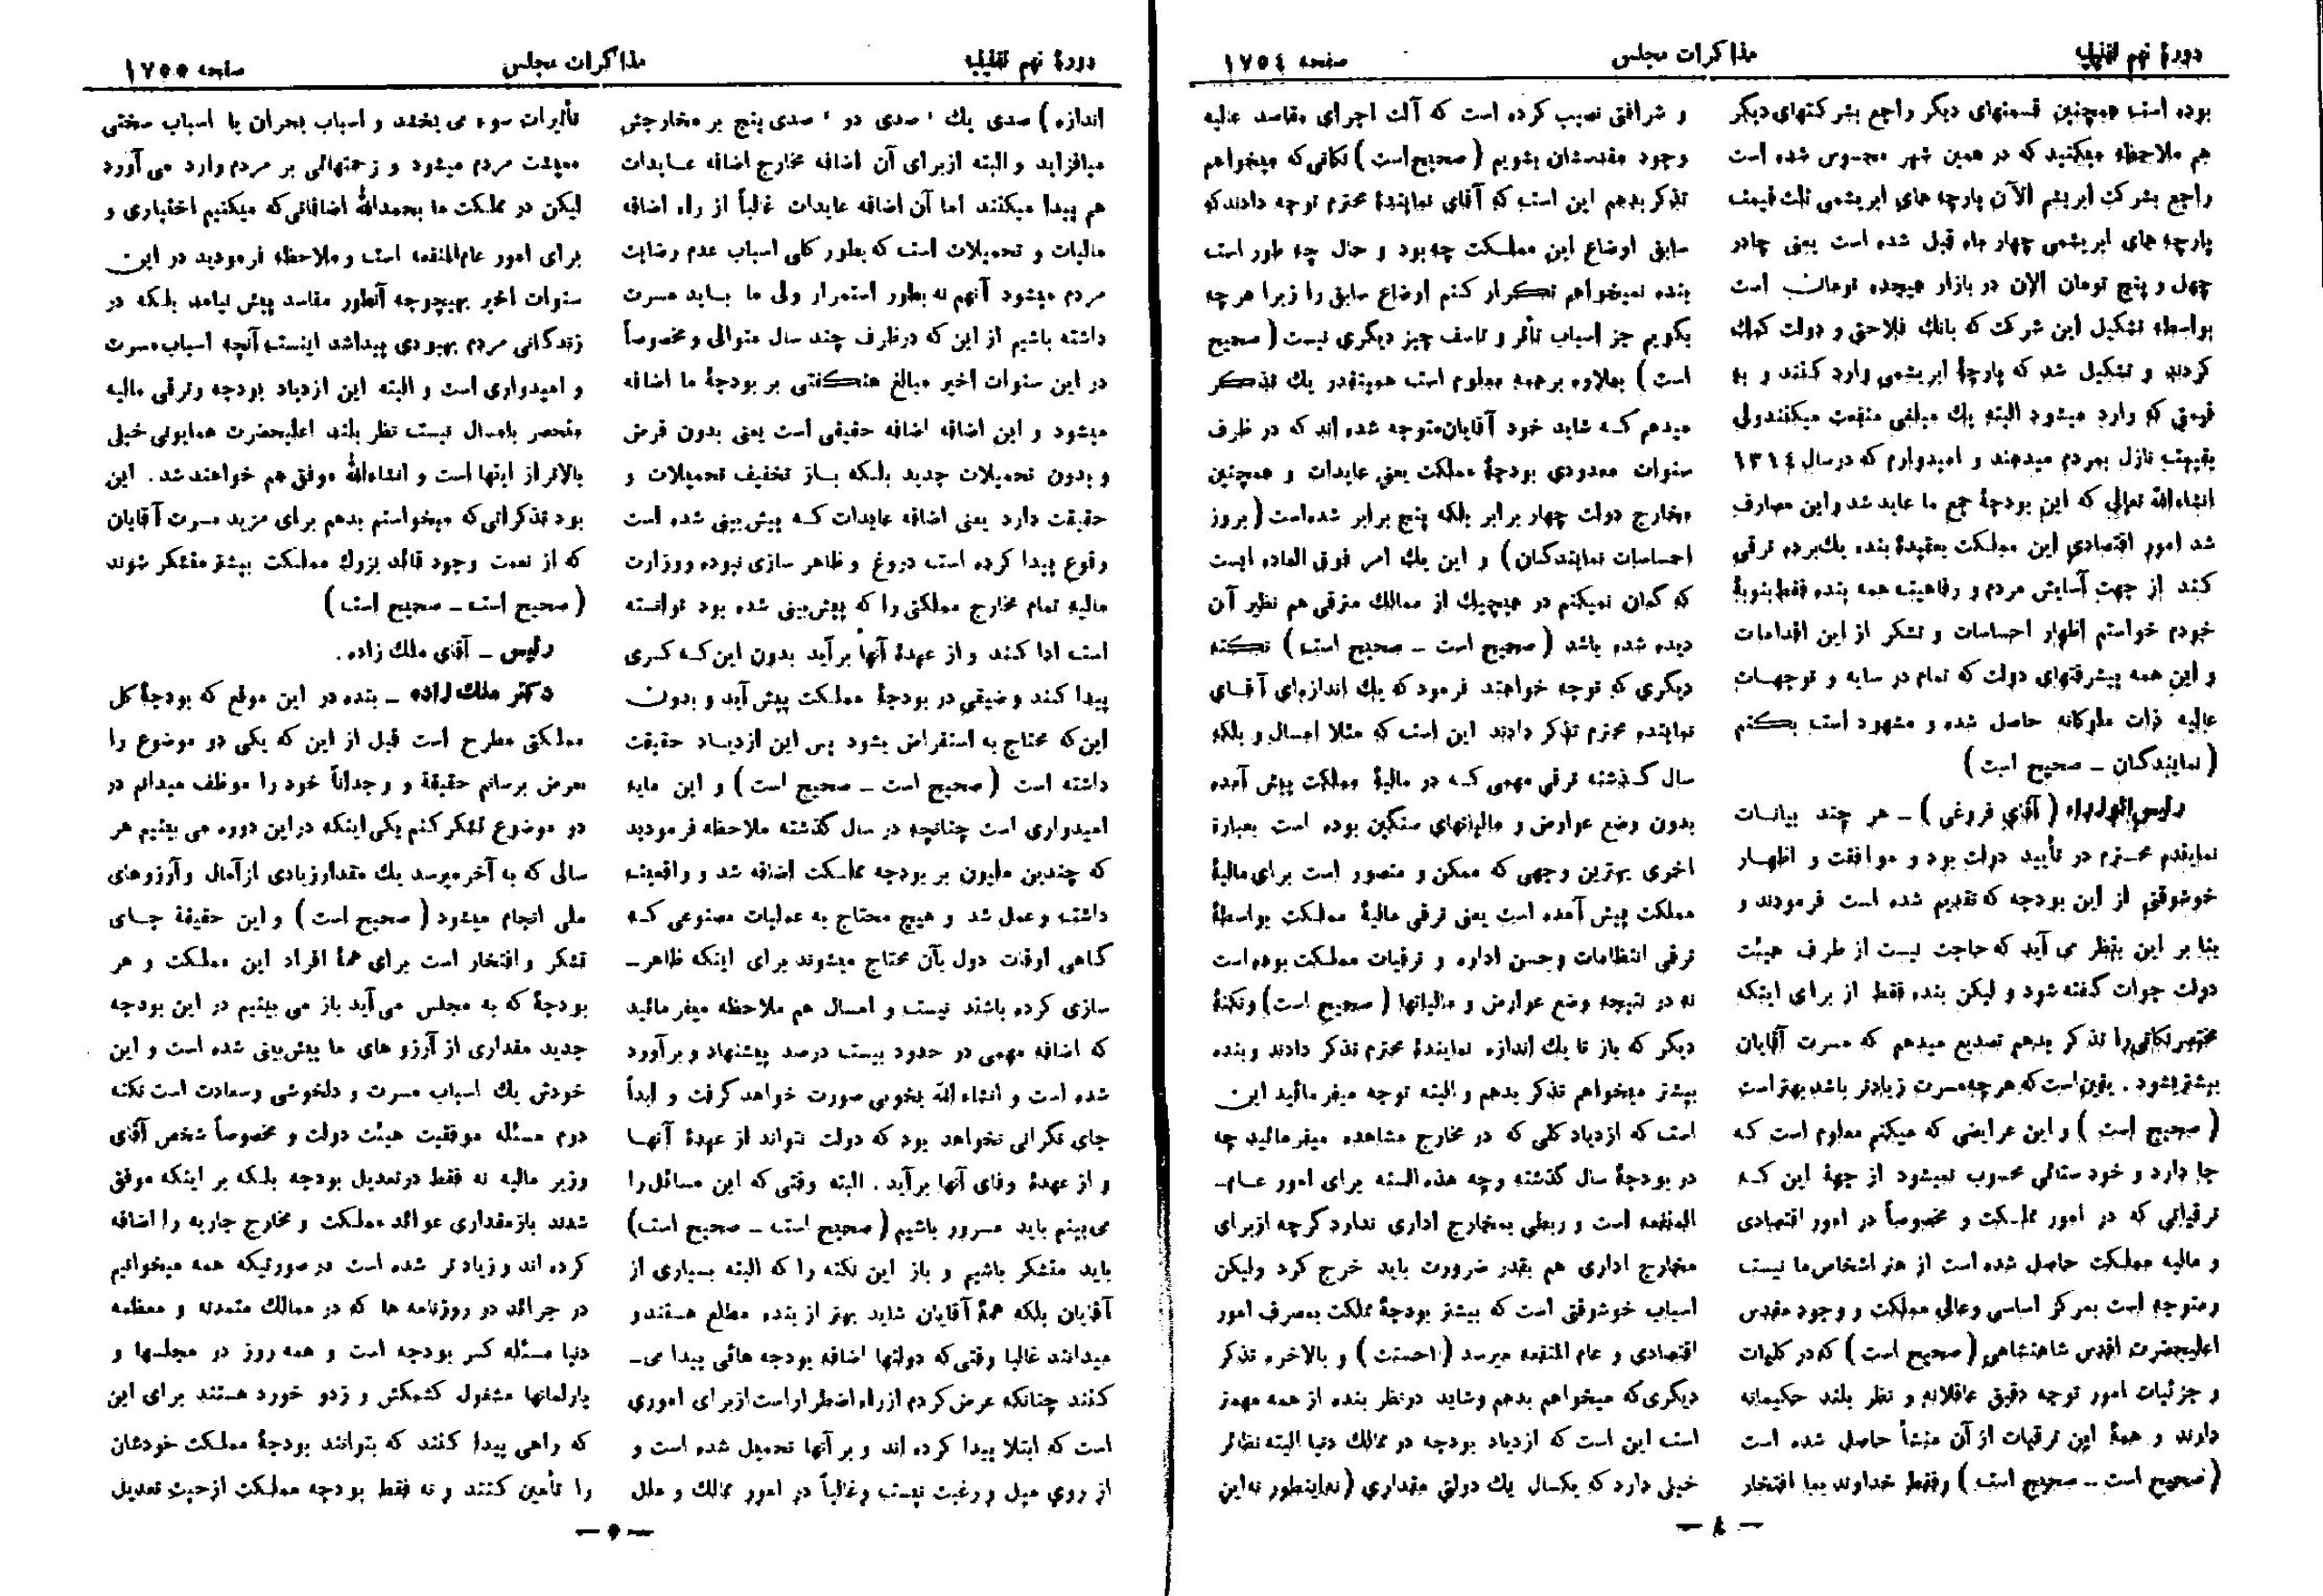 دورهٔ نهم تقنینیه
مذاکرات مجلس
صفحه ۱۷۵٤
بوده است همچنین قسمتهای دیگر راجع بشرکتهای دیگر
هم ملاحظه میکنید که در همین شهر محسوس شده است
راجع بشرکت ابریشم الآن پارچه های ابریشمی ثلث قیمت
پارچه های ابریشمی چهار ماه قبل شده است یعنی چادر
چهل و پنج تومان الان در بازار هیجده تومان است
بواسطه تشکیل این شرکت که بانك فلاحتی و دولت کمك
کردند و تشکیل شد که پارچهٔ ابریشمی وارد کنند و به
قیمتی که وارد میشود البته یك مبلغی منفعت میکنند ولی
بقیمت نازل بمردم میدهند و امیدوارم که در سال ۱۳۱٤
انشاءالله تعالی که این بودجهٔ جمع ما عاید شد و این مصارف
شد امور اقتصادی این مملکت بعقیدهٔ بنده یك برده ترقی
کند از جهت آسایش مردم و رفاهیت همه بنده فقط بنوبهٔ
خودم خواستم اظهار احساسات و تشکر از این اقدامات
و این همه پیشرفتهای دولت که تمام در سایه و توجهات
عالیه ذات ملوکانه حاصل شده و مشهود است بکنم
(نمایندگان ـ صحیح است)
رئیس‌الوزراء (آقای فروغی) ـ هر چند بیانات
نماینده محترم در تأیید دولت بود و موافقت و اظهار
خوشوقتی از این بودجه که تقدیم شده است فرمودند و
بنا بر این بنظر می آید که حاجت نیست از طرف هیئت
دولت جواب گفته شود و لیکن بنده فقط از برای اینکه
مختصر نکاتی را تذکر بدهم تصدیع میدهم که مسرت آقایان
بیشتر بشود . یقین است که هر چه مسرت زیادتر باشد بهتر است
(صحیح است) و این عرایضی که میکنم معلوم است که
جا دارد و خود ستائی محسوب نمیشود از جهة این که
ترقیاتی که در امور مملکت و مخصوصاً در امور اقتصادی
و مالیه مملکت حاصل شده است از هنر اشخاص ما نیست
و متوجه است بمرکز اساسی و عالی مملکت و وجود مقدس
اعلیحضرت اقدس شاهنشاهی (صحیح است) که در کلیات
و جزئیات امور توجه دقیق عاقلانه و نظر بلند حکیمانه
دارند و همهٔ این ترقیات از آن منشأ حاصل شده است
(صحیح است ـ صحیح است) و فقط خداوند بما افتخار
و شرافتی نصیب کرده است که آلت اجرای مقاصد عالیه
وجود مقدسشان بشویم (صحیح است) نکاتی که میخواهم
تذکر بدهم این است که آقای نمایندهٔ محترم توجه دادند که
سابق اوضاع این مملکت چه بود و حال چه طور است
بنده نمیخواهم تکرار کنم اوضاع سابق را زیرا هر چه
بگویم جز اسباب تأثر و تاسف چیز دیگری نیست (صحیح
است) بعلاوه بر همه معلوم است همینقدر یك تذکر
میدهم که شاید خود آقایان متوجه شده اند که در ظرف
سنوات معدودی بودجهٔ مملکت یعنی عایدات و همچنین
مخارج دولت چهار برابر بلکه پنج برابر شده است (بروز
احساسات نمایندگان) و این یك امر فوق العاده ایست
که گمان نمیکنم در هیچیك از ممالك مترقی هم نظیر آن
دیده شده باشد (صحیح است ـ صحیح است) نکته
دیگری که توجه خواهند فرمود که یك اندازه‌ای آقای
نماینده محترم تذکر دادند این است که مثلا امسال و بلکه
سال گذشته ترقی مهمی که در مالیهٔ مملکت پیش آمده
بدون وضع عوارض و مالیاتهای سنگین بوده است بعبارة
اخری بهترین وجهی که ممکن و متصور است برای مالیهٔ
مملکت پیش آمده است یعنی ترقی مالیهٔ مملکت بواسطهٔ
ترقی انتظامات و حسن اداره و ترقیات مملکت بوده است
نه در نتیجه وضع عوارض و مالیاتها (صحیح است) و نکتهٔ
دیگر که باز تا یك اندازه نمایندهٔ محترم تذکر دادند و بنده
بیشتر میخواهم تذکر بدهم و البته توجه میفرمائید این
است که ازدیاد کلی که در مخارج مشاهده میفرمائید چه
در بودجهٔ سال گذشته و چه هذه السنه برای امور عام‌ـ
المنفعه است و ربطی بمخارج اداری ندارد گرچه از برای
مخارج اداری هم بقدر ضرورت باید خرج کرد ولیکن
اسباب خوشوقتی است که بیشتر بودجهٔ مملکت بمصرف امور
اقتصادی و عام المنفعه میرسد (احسنت) و بالاخره تذکر
دیگری که میخواهم بدهم و شاید در نظر بنده از همه مهمتر
است این است که ازدیاد بودجه در ممالك دنیا البته نظائر
خیلی دارد که یکسال یك دولتی مقداری (نه اینطور نه این
ـ ٤ ـ
دورهٔ نهم تقنینیه
مذاکرات مجلس
صفحه ۱۷۵۵
اندازه) صدی یك ، صدی دو ، صدی پنج بر مخارجش
میافزاید و البته از برای آن اضافه مخارج اضافه عایدات
هم پیدا میکنند اما آن اضافه عایدات غالباً از راه اضافه
مالیات و تحمیلات است که بطور کلی اسباب عدم رضایت
مردم میشود آنهم نه بطور استمرار ولی ما باید مسرت
داشته باشیم از این که در ظرف چند سال متوالی و مخصوصاً
در این سنوات اخیر مبالغ هنگفتی بر بودجهٔ ما اضافه
میشود و این اضافه اضافه حقیقی است یعنی بدون قرض
و بدون تحمیلات جدید بلکه باز تخفیف تحمیلات و
حقیقت دارد یعنی اضافه عایدات که پیش بینی شده است
وقوع پیدا کرده است دروغ و ظاهر سازی نبوده و وزارت
مالیه تمام مخارج مملکتی را که پیش‌بینی شده بود توانسته
است ادا کند و از عهدهٔ آنها برآید بدون این که کسری
پیدا کند و ضیقی در بودجهٔ مملکت پیش آید و بدون
این که محتاج به استقراض بشود پس این ازدیاد حقیقت
داشته است (صحیح است ـ صحیح است) و این مایه
امیدواری است چنانچه در سال گذشته ملاحظه فرمودید
که چندین ملیون بر بودجه مملکت اضافه شد و واقعیت
داشت و عمل شد و هیچ محتاج به عملیات مصنوعی که
گاهی اوقات دول بآن محتاج میشوند برای اینکه ظاهر‌ـ
سازی کرده باشند نیست و امسال هم ملاحظه میفرمائید
که اضافه مهمی در حدود بیست درصد پیشنهاد و برآورد
شده است و انشاءالله بخوبی صورت خواهد گرفت و ابداً
جای نگرانی نخواهد بود که دولت نتواند از عهدهٔ آنها
و از عهدهٔ وفای آنها برآید . البته وقتی که این مسائل را
می‌بینم باید مسرور باشیم (صحیح است ـ صحیح است)
باید متشکر باشیم و باز این نکته را که البته بسیاری از
آقایان بلکه همهٔ آقایان شاید بهتر از بنده مطلع هستند و
میدانند غالبا وقتی که دولتها اضافه بودجه هائی پیدا می‌ـ
کنند چنانکه عرض کردم از راه اضطرار است از برای اموری
است که ابتلا پیدا کرده اند و بر آنها تحمیل شده است و
از روی میل و رغبت نیست و غالباً در امور ممالك و ملل
تأثیرات سوء می بخشد و اسباب بحران یا اسباب سختی
معیشت مردم میشود و زحمتهائی بر مردم وارد می آورد
لیکن در مملکت ما بحمدالله اضافاتی که میکنیم اختیاری و
برای امور عام‌المنفعه است و ملاحظه فرمودید در این
سنوات اخیر بهیچوجه آنطور مفاسد پیش نیامد بلکه در
زندگانی مردم بهبودی پیدا شد اینست آنچه اسباب مسرت
و امیدواری است و البته این ازدیاد بودجه و ترقی مالیه
منحصر بامسال نیست نظر بلند اعلیحضرت همایونی خیلی
بالاتر از اینها است و انشاءالله موفق هم خواهند شد . این
بود تذکراتی که میخواستم بدهم برای مزید مسرت آقایان
که از نعمت وجود قائد بزرك مملکت بیشتر متشکر شوند
(صحیح است ـ صحیح است)
رئیس ـ آقای ملك زاده .
دکتر ملك‌زاده ـ بنده در این موقع که بودجهٔ کل
مملکتی مطرح است قبل از این که یکی دو موضوع را
بعرض برسانم حقیقة و وجداناً خود را موظف میدانم در
دو موضوع تشکر کنم یکی اینکه در این دوره می بینیم هر
سالی که به آخر میرسد یك مقدار زیادی از آمال و آرزوهای
ملی انجام میشود (صحیح است) و این حقیقة جای
تشکر و افتخار است برای همهٔ افراد این مملکت و هر
بودجهٔ که به مجلس می آید باز می بینیم در این بودجه
جدید مقداری از آرزو های ما پیش‌بینی شده است و این
خودش یك اسباب مسرت و دلخوشی و سعادت است نکته
دوم مسئله موفقیت هیئت دولت و مخصوصاً شخص آقای
وزیر مالیه نه فقط در تعدیل بودجه بلکه بر اینکه موفق
شدند باز مقداری عوائد مملکت و مخارج جاریه را اضافه
کرده اند و زیاد تر شده است در صورتیکه همه میخوانیم
در جرائد در روزنامه ها که در ممالك متمدنه و معظمه
دنیا مسئله کسر بودجه است و همه روز در مجلسها و
پارلمانها مشغول کشمکش و زدو خورد هستند برای این
که راهی پیدا کنند که بتوانند بودجهٔ مملکت خودشان
را تأمین کنند و نه فقط بودجه مملکت از حیث تعدیل
ـ ۵ ـ